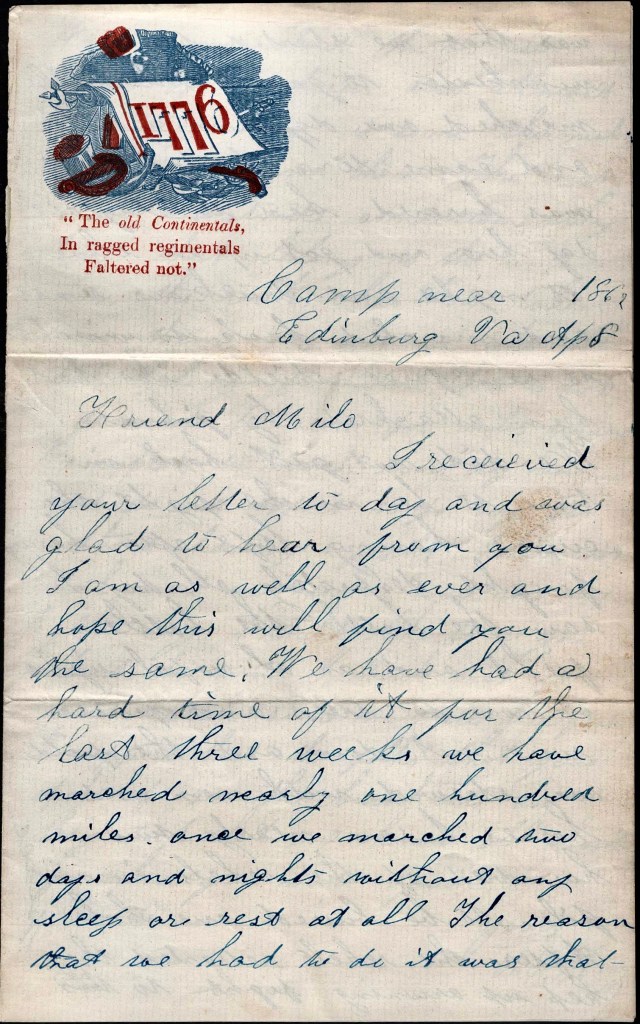 1776
" The old Continentals,
In ragged regimentals
Faltered not."
Camp near 1862
Edinburg Va Ap 8
Friend Milo
I receieved
your letter to day and was
glad to hear from you
I am as well as ever and
hope this will find you
the same; We have had a
hard time of it for the
last three weeks we have
marched nearly one hundred
miles. once we marched two
days and nights without any
sleep or rest at all The reason
that we had to do it was that